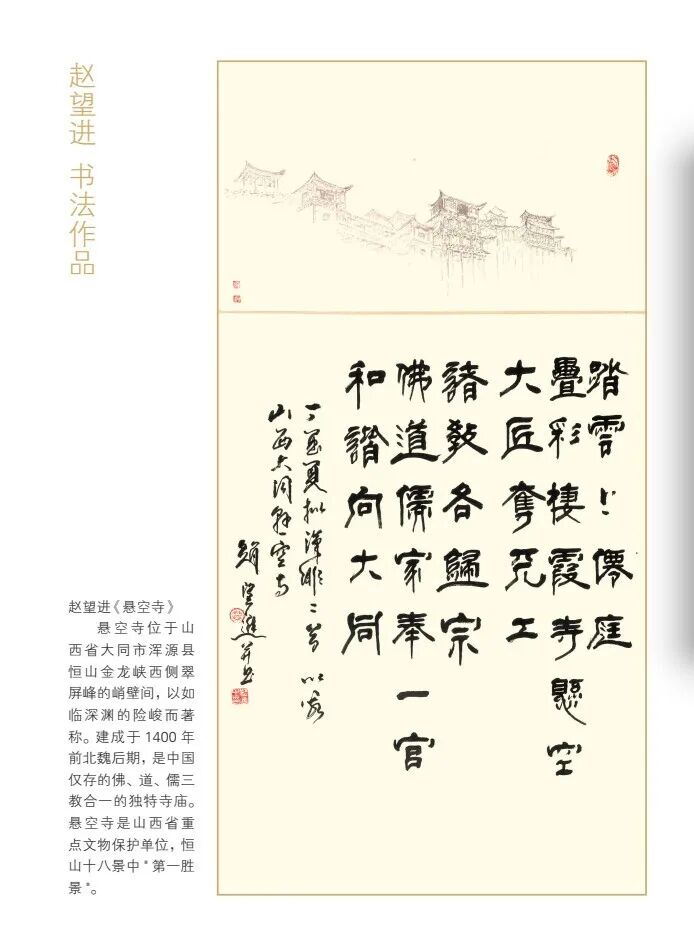 赵望进 书法作品
踏雲〻僊庭
疊彩棲霞寺懸空
大匠奪工
諸教各歸宗
佛道儒家奉一官
和諧向大同
丁夏
山西大同懸空寺
趙望進并書
赵望进《悬空寺》
悬空寺位于山
西省大同市浑源县
恒山金龙峡西侧翠
屏峰的峭壁间，以如
临深渊的险峻而著
称。建成于 1400 年
前北魏后期，是中国
仅存的佛、道、儒三
教合一的独特寺庙。
悬空寺是山西省重
点文物保护单位，恒
山十八景中"第一胜
景"。